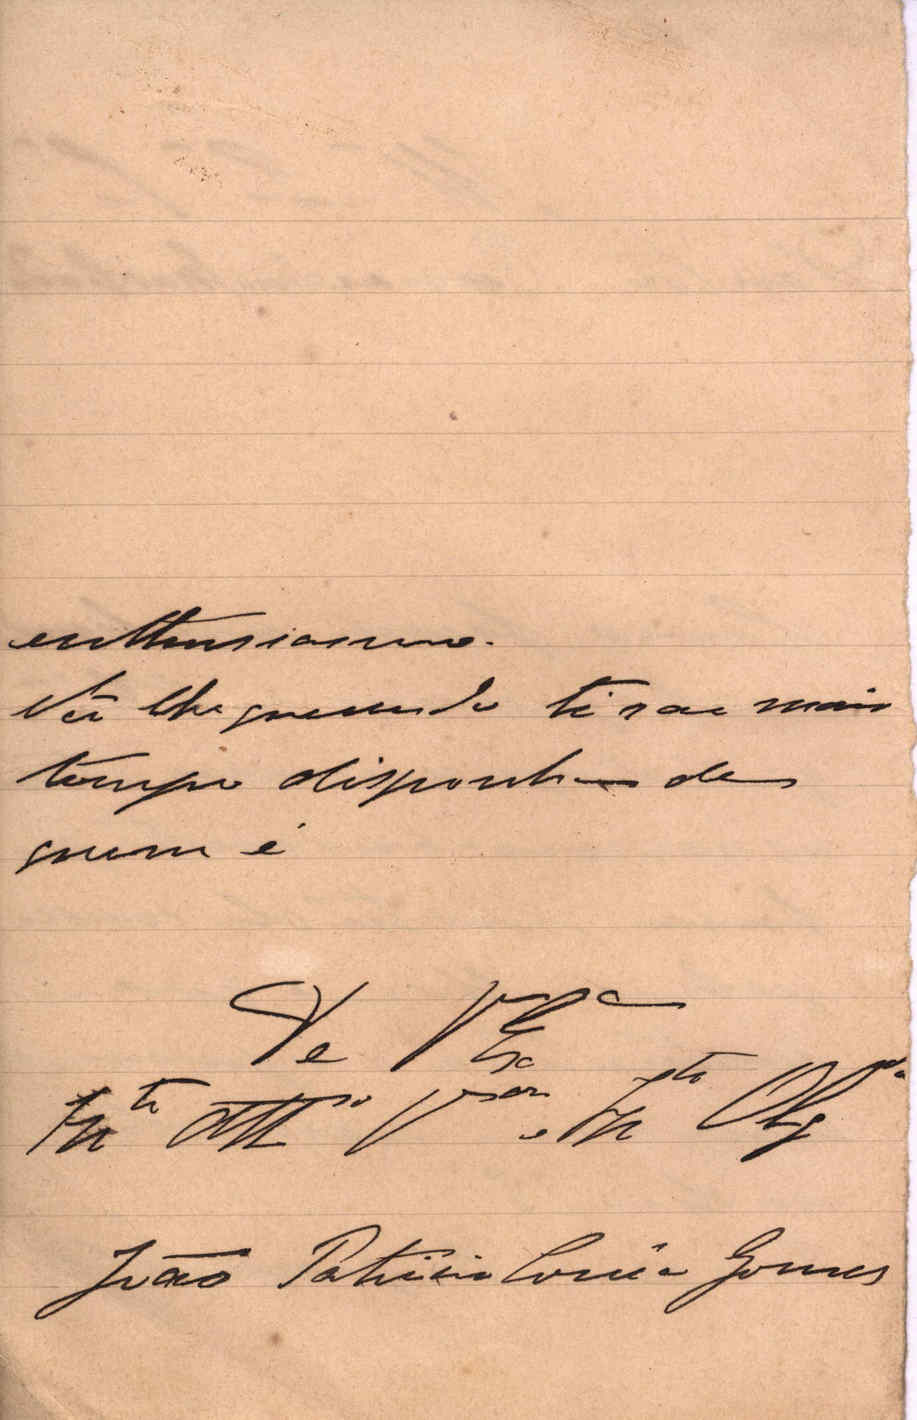 enthusiasmo.
Não lhe querendo tirar mais
tempo disponha de
quem é
De V. Exª
Mto Atto Vor e Mto Obgdo
João Patricio Corrêa Gomes